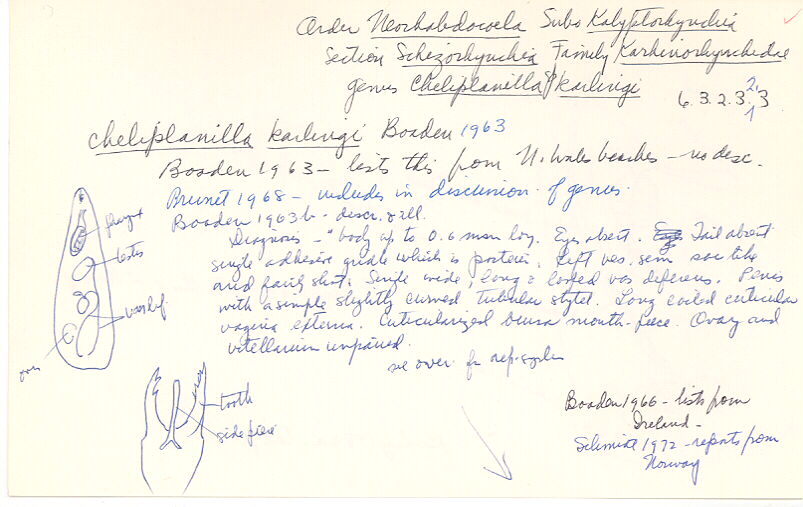 Order Neorhabdocoela Subo Kalyptorhynchia
Section Schizorhynchia Family Karkinorhynchidae
genus Cheliplanilla karlingi
6.3.2.3.3
2,
1
Cheliplanilla karlingi Boaden 1963
Boaden 1963 - lists this from N. Wales beaches - no desc.
Brunet 1968 - includes in discussion of genus.
Boaden 1963b - descr. & ill.
Diagnosis - "body up to 0.6 mm long. Eyes absent. Tail absent
single adhesive girdle which is posterior. Left ves. sem sac like
and fairly short. Single wide, long & looped vas deferens. Penis
with a simple slightly curved tubular stylet. Long coiled cuticular
vagina externa. Cuticularized bursa mouth-piece. Ovary and
vitellarium unpaired.
see over for rep. system
pharynx
testis
vas def
ov
tooth
side piece
Boaden 1966 - lists from
Ireland -
Schmidt 1972 - reports from
Norway